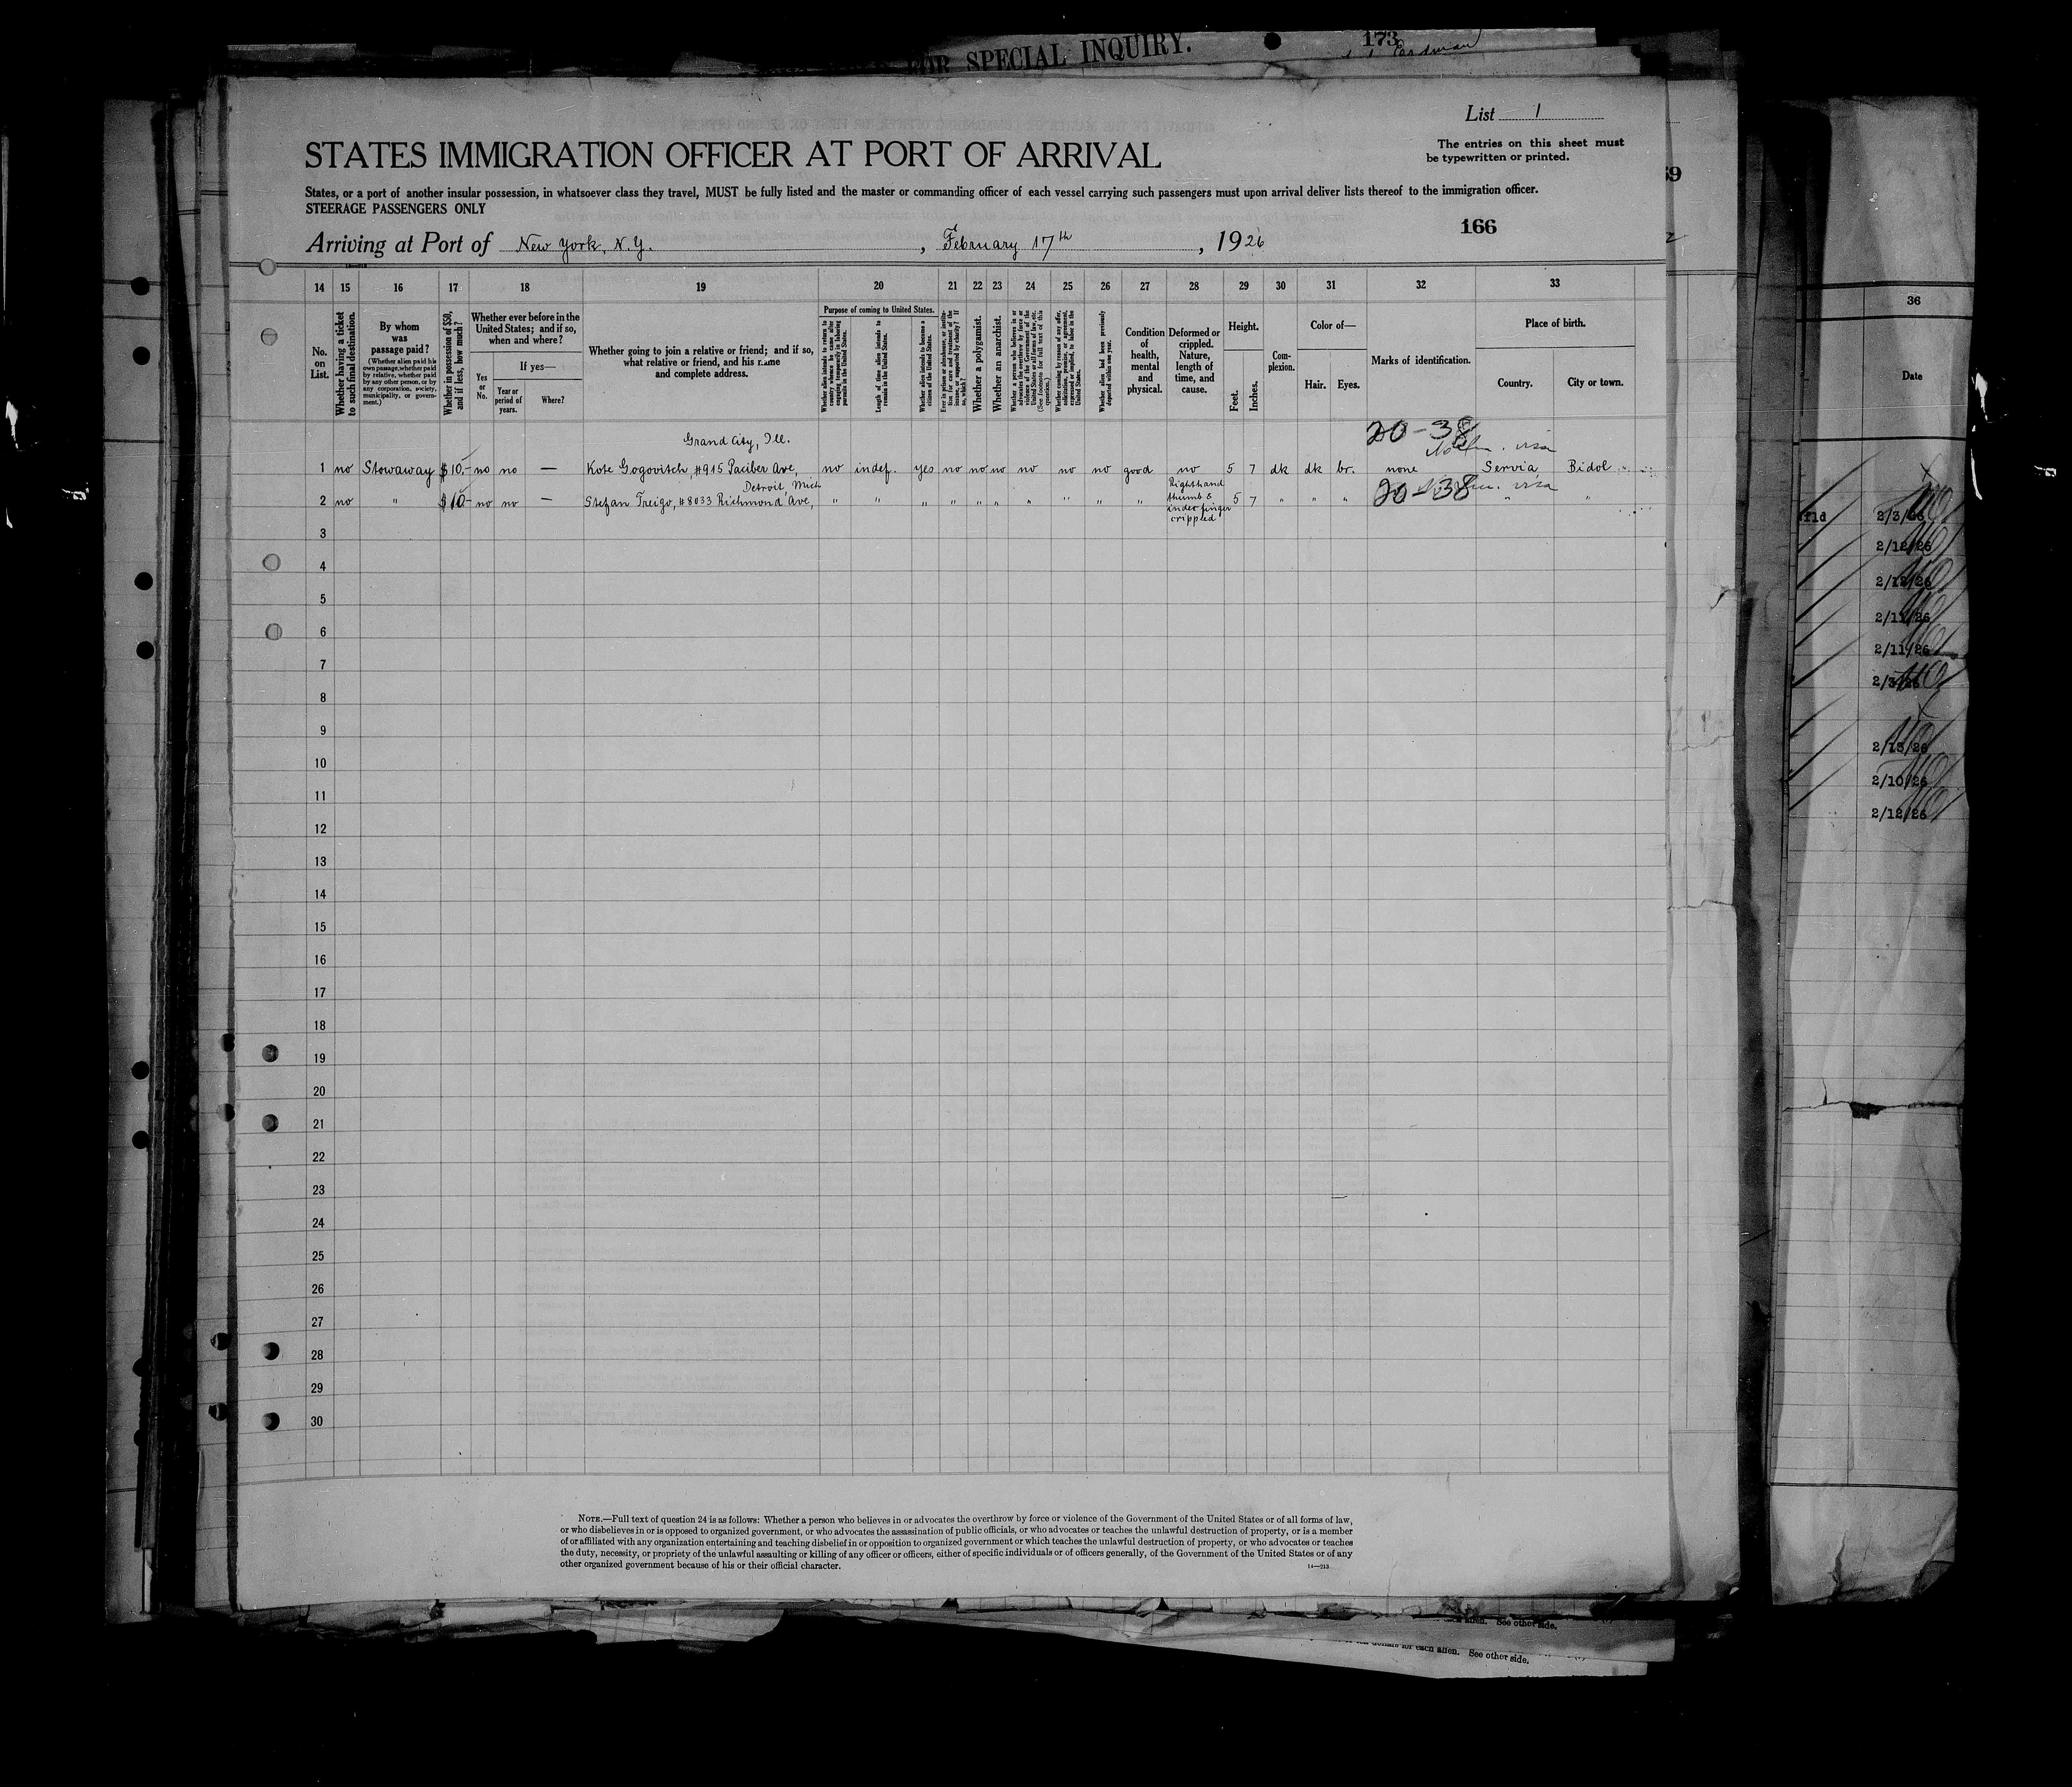 FOR SPECIAL INQUIRY.
173
List 1
The entries on this sheet must
be typewritten or printed.
STATES IMMIGRATION OFFICER AT PORT OF ARRIVAL
States, or a port of another insular possession, in whatsoever class they travel, MUST be fully listed and the master or commanding officer of each vessel carrying such passengers must upon arrival deliver lists thereof to the immigration officer.
STEERAGE PASSENGERS ONLY
166
Arriving at Port of New York, N.Y. , February 17th , 1926
14 15 16 17 18 19 20 21 22 23 24 25 26 27 28 29 30 31 32 33
No. on List.
Whether having a ticket to such final destination.
By whom was passage paid?
(Whether alien paid his own passage, whether paid by relative, whether paid by any other person, or by any corporation, society, municipality, or government.)
Whether in possession of $50, and if less, how much?
Whether ever before in the United States; and if so, when and where?
Yes or No.
If yes—
Year or period of years.
Where?
Whether going to join a relative or friend; and if so, what relative or friend, and his name and complete address.
Purpose of coming to United States.
Whether alien intends to return to country whence he came after engaging temporarily in laboring pursuits in the United States.
Length of time alien intends to remain in the United States.
Whether alien intends to become a citizen of the United States.
Ever in prison or almshouse, or institution for care and treatment of the insane, or supported by charity? If so, which?
Whether a polygamist.
Whether an anarchist.
Whether a person who believes in or advocates the overthrow by force or violence of the Government of the United States or all forms of law, etc. (See footnote for full text of this question.)
Whether coming by reason of any offer, solicitation, promise, or agreement, expressed or implied, to labor in the United States.
Whether alien had been previously deported within one year.
Condition of health, mental and physical.
Deformed or crippled. Nature, length of time, and cause.
Height.
Feet. Inches.
Complexion.
Color of—
Hair. Eyes.
Marks of identification.
Place of birth.
Country. City or town.
20-38
visa
Grand City, Ill.
1 no Stowaway $10.- no no — Kote Gogovitch, #915 Paciber Ave, no indef. yes no no no no no no good no 5 7 dk dk br. none Servia Bidol
Detroit Mich
2 no " $10- no no — Stefan Treigo, #8033 Richmond Ave, " " " " " " " " " " Right hand thumb & index finger crippled 5 7 " " " 20-38 visa " "
3
4
5
6
7
8
9
10
11
12
13
14
15
16
17
18
19
20
21
22
23
24
25
26
27
28
29
30
NOTE.—Full text of question 24 is as follows: Whether a person who believes in or advocates the overthrow by force or violence of the Government of the United States or of all forms of law,
or who disbelieves in or is opposed to organized government, or who advocates the assassination of public officials, or who advocates or teaches the unlawful destruction of property, or is a member
of or affiliated with any organization entertaining and teaching disbelief in or opposition to organized government or which teaches the unlawful destruction of property, or who advocates or teaches
the duty, necessity, or propriety of the unlawful assaulting or killing of any officer or officers, either of specific individuals or of officers generally, of the Government of the United States or of any
other organized government because of his or their official character.
14—213
36
Date
2/12/26
2/12/26
2/11/26
2/11/26
2/3/26
2/13/26
2/10/26
2/12/26
See other side.
for each alien. See other side.